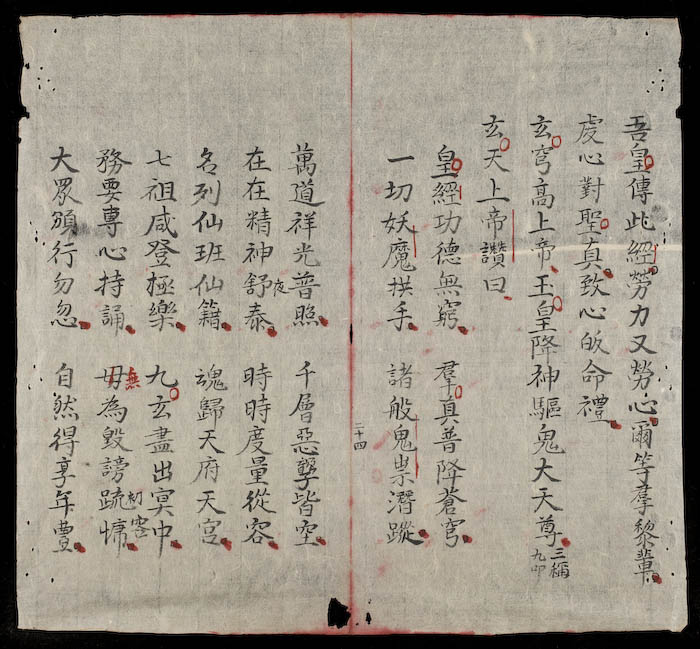 吾皇傳此經勞力又勞心爾等羣黎輩
虔心對聖真致心皈命禮
玄穹高上帝玉皇降神驅鬼大天尊三稱九叩
玄天上帝讚曰
皇經功德無窮 羣真普降蒼穹
一切妖魔拱手 諸般鬼祟潛蹤
二十四
萬道祥光普照 千層惡孽皆空
在在精神舒泰 時時度量從容
名列仙班仙籍 魂歸天府天宮
七祖咸登極樂 九玄盡出冥中
務要專心持誦 毋無為毀謗疏慵
大眾頒行勿忽 自然得享年豊